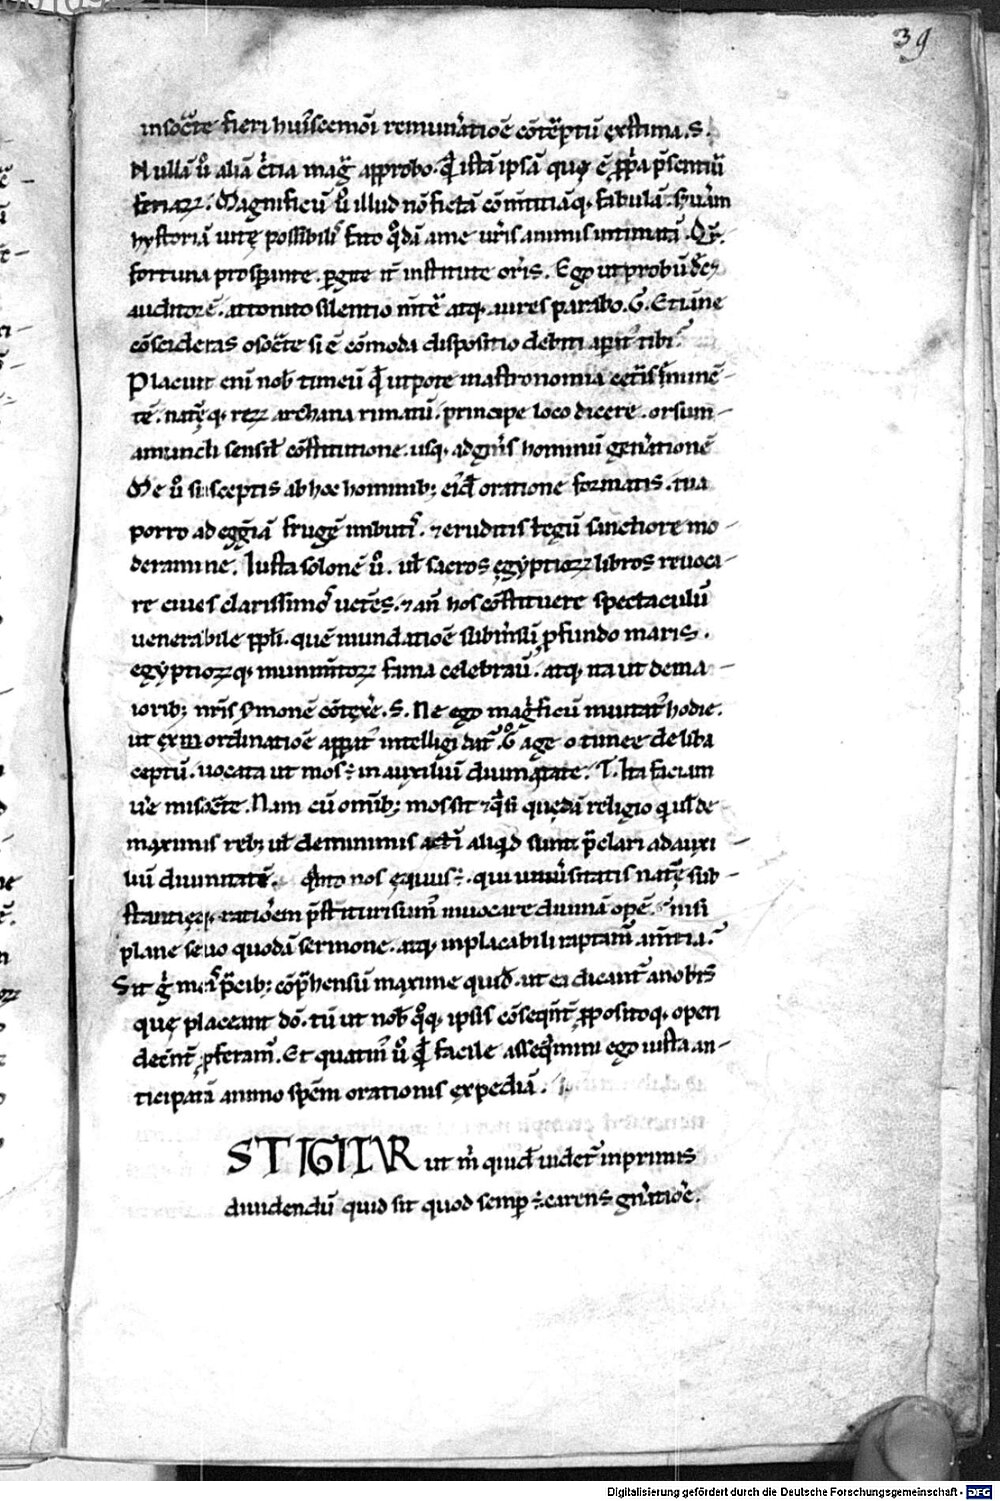 39
insoc̄te fieri hui᷒scemōi remun̄atiōe cōtēptū ęxstima. S.
Nullā ū aliā c̄tia mag̅ approbo. q̄ istā ipsā quę ē ꝓp̄a p̄sentiū
feriaꝝ. Magnificū ū illud nō fictā cōm̄titiāq; fabulā. s; ueri᷒m
hystoriā uitę possibili᷒ fato q̊dā a me ur̄is animis intimatā. C.
fortuna prosp̱ante. ꝑgite it̄ institute oris. Ego ut probū dec;
auditorē. attonito silentio m̄tē atq; aures parabo. C. Et iā ne
cōsideras o soc̄te si ē cōmoda dispositio debiti aparat᷒ tibi.
Placuit enī nob̄ timeū q̄ utpote in astronomia cet̄is īminē-
tē. natęq; reꝝ archana rimatū. principe loco dicere. orsum
a mundi sensil̄ cōstitutione. usq; ad gn̄is hominū gen̄ationē
Me ū susceptis ab hoc hominib; eid̄ oratione formatis. tua
porro ad eggiā frugē imbutis. ⁊ eruditis legū sanctiore mo-
deramine. Iusta solonē ū. ul̄ sacros ęgyptioꝝ libros reuoca-
re ciues clarissimos uetēs. ⁊ an̄ hos cōstituere spectaculū
uenerabile ppl̄i. quē inundatiōe submsū ꝓfundo maris.
egyptioꝝq; munimtoꝝ fama celebrauit. atq; ita ut de ma-
iorib; nr̄is s̱monē cōtęx̄e. S. Ne ego mag̅ficū inuitat̄ hodie.
ut ęx ordinatiōe appat᷒ intelligi dat̄. g̊ age o timee de liba
ceptū. uocata ut mos ÷ in auxiliū diuinitate. T. Ita faciam
ūe mi soc̄te. Nam cū omib; mos sit ⁊ q̄si quędā religio q ul̄ de
maximis reb; ul̄ de minimis acti aliq̄d sunt p̄clari ad auxi-
liū diuinitatē. Quito nos ęquius ÷. qui uniūsitatis natę sub-
stantięq; ratiōem p̄stituri sum᷒ inuocare diuinā opē. nisi
plane seuo quodā sermone. atq; inplacabili raptam᷒ am̄tia.
Sit g̅ meis p̄cib; cōp̄hensū maxime quid. ut ea dicant̄ a nobis
quę placeant dō. tū ut nob̄ q̊q; ipsis cōseqn̄t ꝓpositoq; operi
decn̄t ꝓferam᷒. Et quatin᷒ ū q̄ facile asseqūmini ego iusta an-
ticipatā animo spēm orationis ęxpediā.
ST IGITVR ut m̄ quid̄ uidet̄ inprimis
diuidendū quid sit quod semꝑ ÷ carens gn̄atiōe.
Digitalisierung gefördert durch die Deutsche Forschungsgemeinschaft - DFG